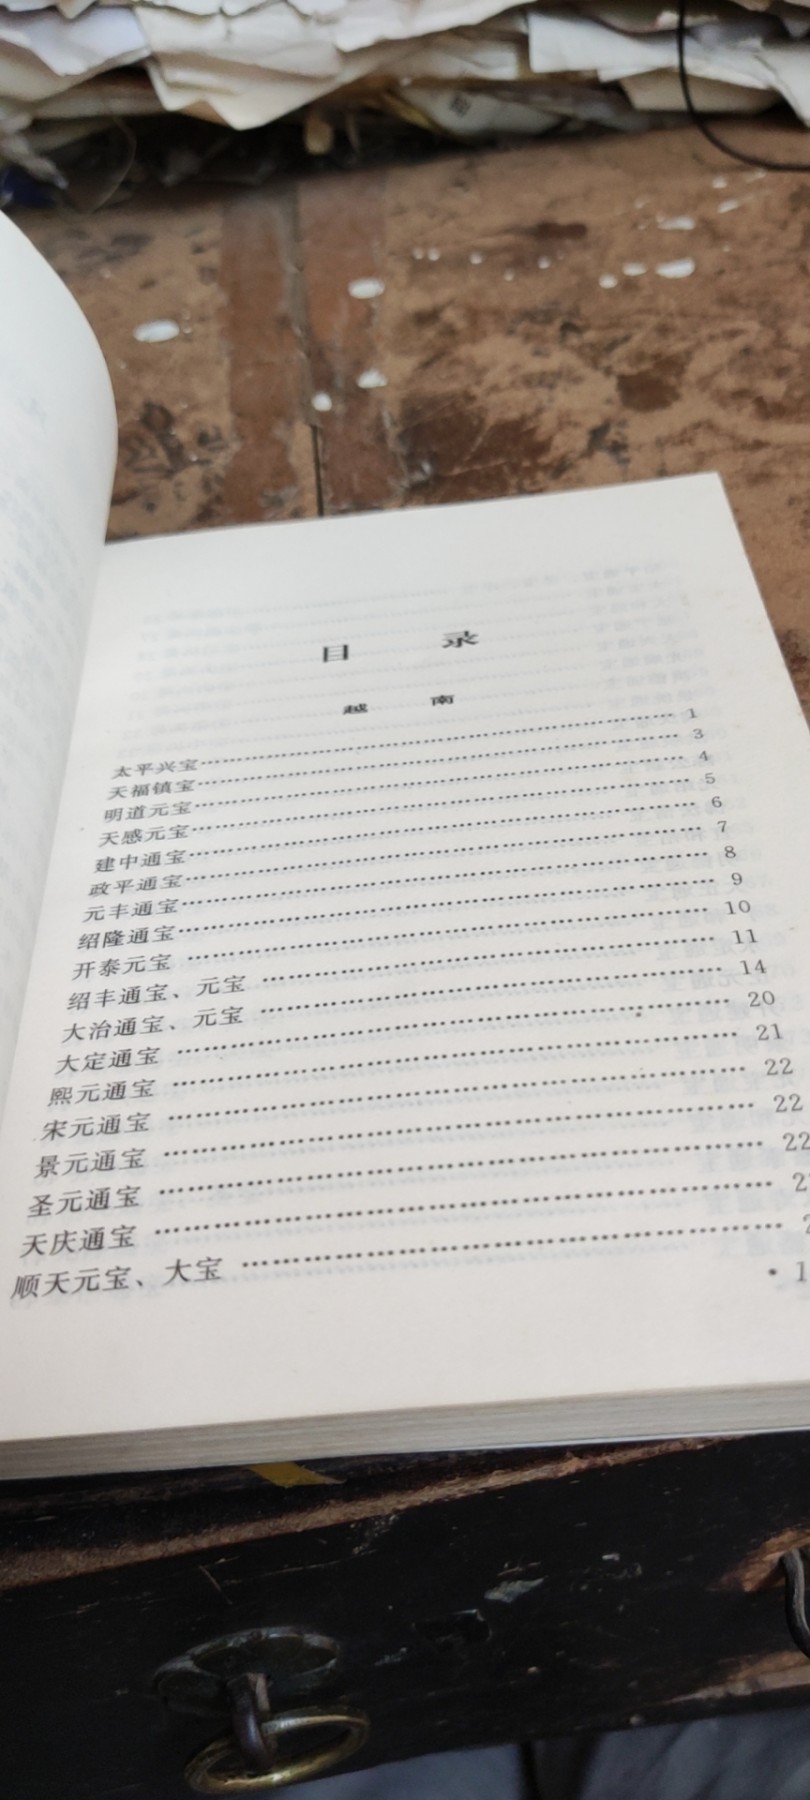 目 录
越 南
太平兴宝…………………………………………………… 1
天福镇宝…………………………………………………… 3
明道元宝…………………………………………………… 4
天感元宝…………………………………………………… 5
建中通宝…………………………………………………… 6
政平通宝…………………………………………………… 7
元丰通宝…………………………………………………… 8
绍隆通宝…………………………………………………… 9
开泰元宝 ………………………………………………… 10
绍丰通宝、元宝 ………………………………………… 11
大治通宝、元宝 ………………………………………… 14
大定通宝 ………………………………………………… 20
熙元通宝 ………………………………………………… 21
宋元通宝 ………………………………………………… 22
景元通宝 ………………………………………………… 22
圣元通宝 ………………………………………………… 22
天庆通宝 ………………………………………………… 2
顺天元宝、大宝 ………………………………………… 2
• 1